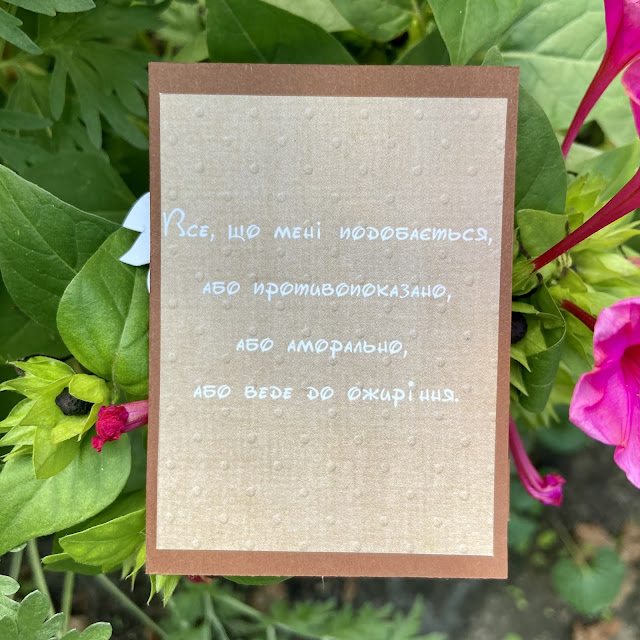 Все, що мені подобається,
або противопоказано,
або аморально,
або веде до ожиріння.